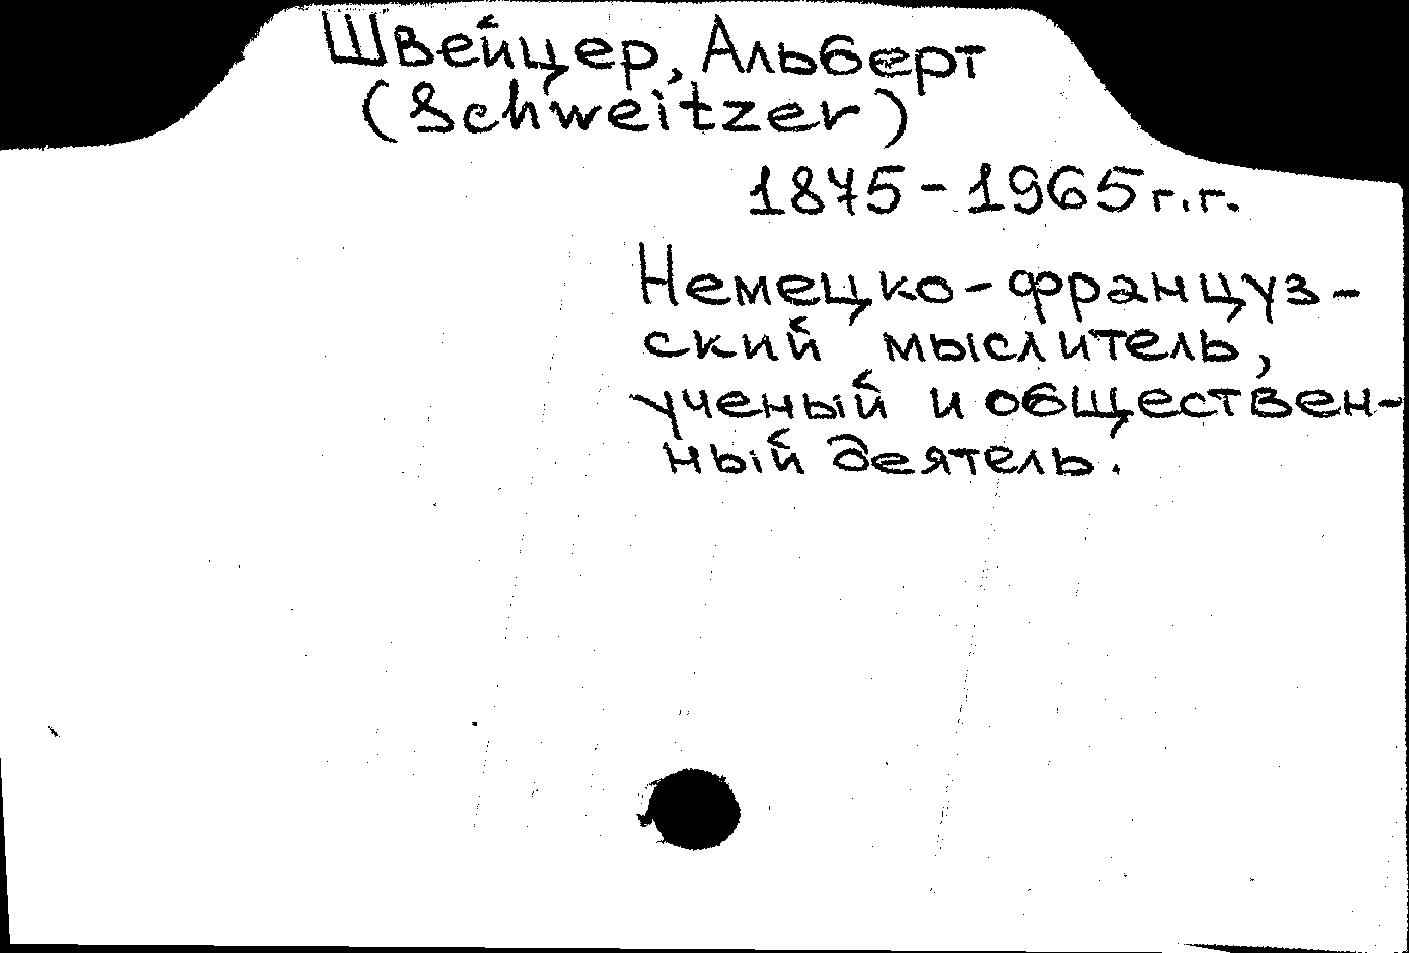 Швейцер, Альберт
(Schweitzer)
1875-1965г.г.
Немецко-француз-
ский мыслитель,
ученый и обществен-
ный деятель.